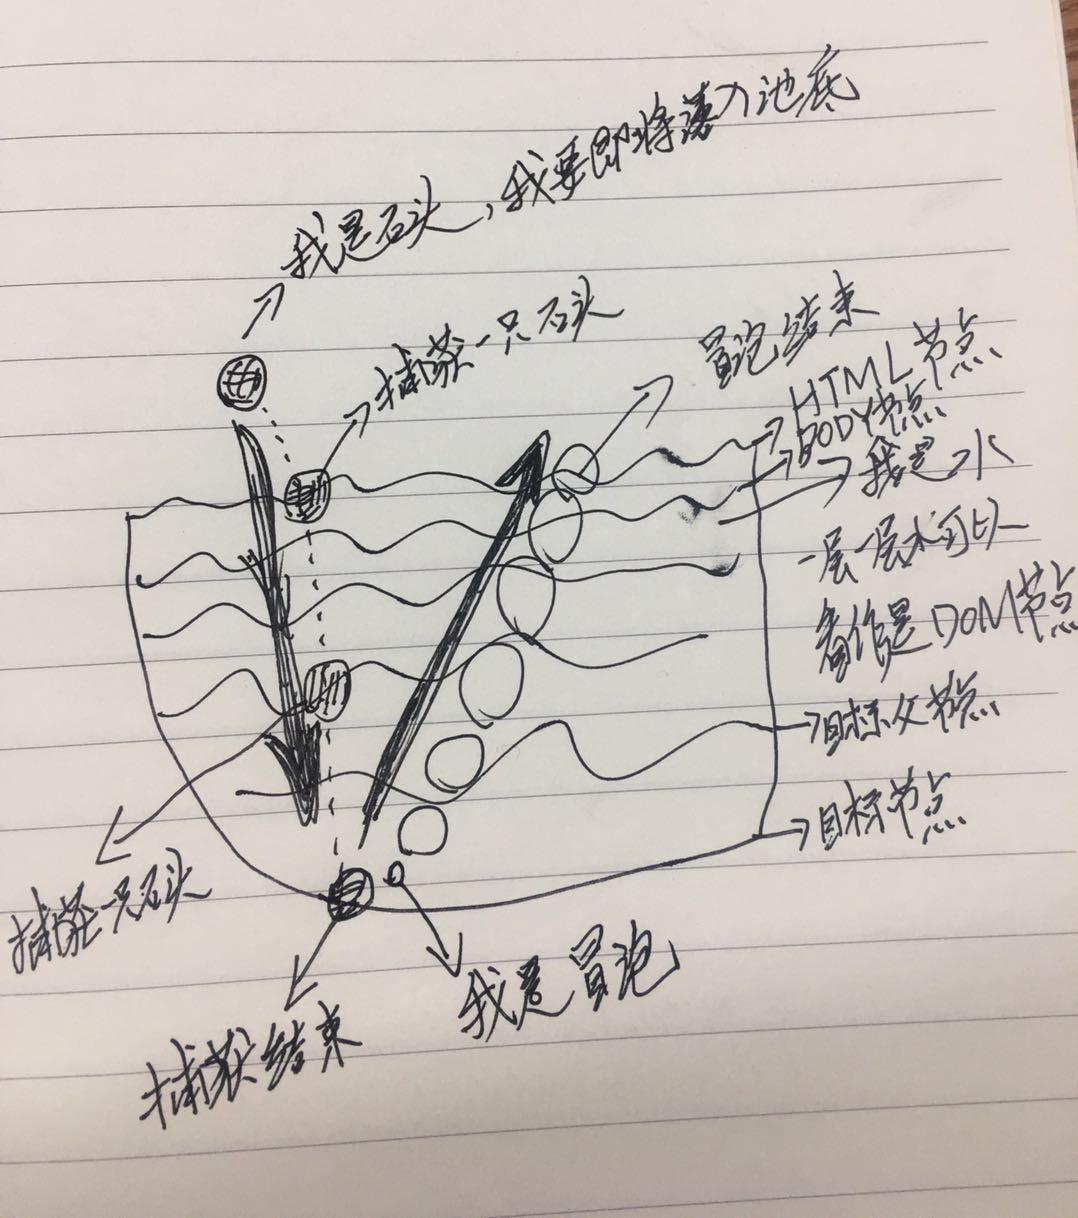 我是石头，我要即将落入池底
捕获一只石头
冒泡结束
HTML节点
BODY节点
我是水
一层一层水可以
看作是DOM节点
目标父节点
目标节点
捕获一只石头
我是冒泡
捕获结束